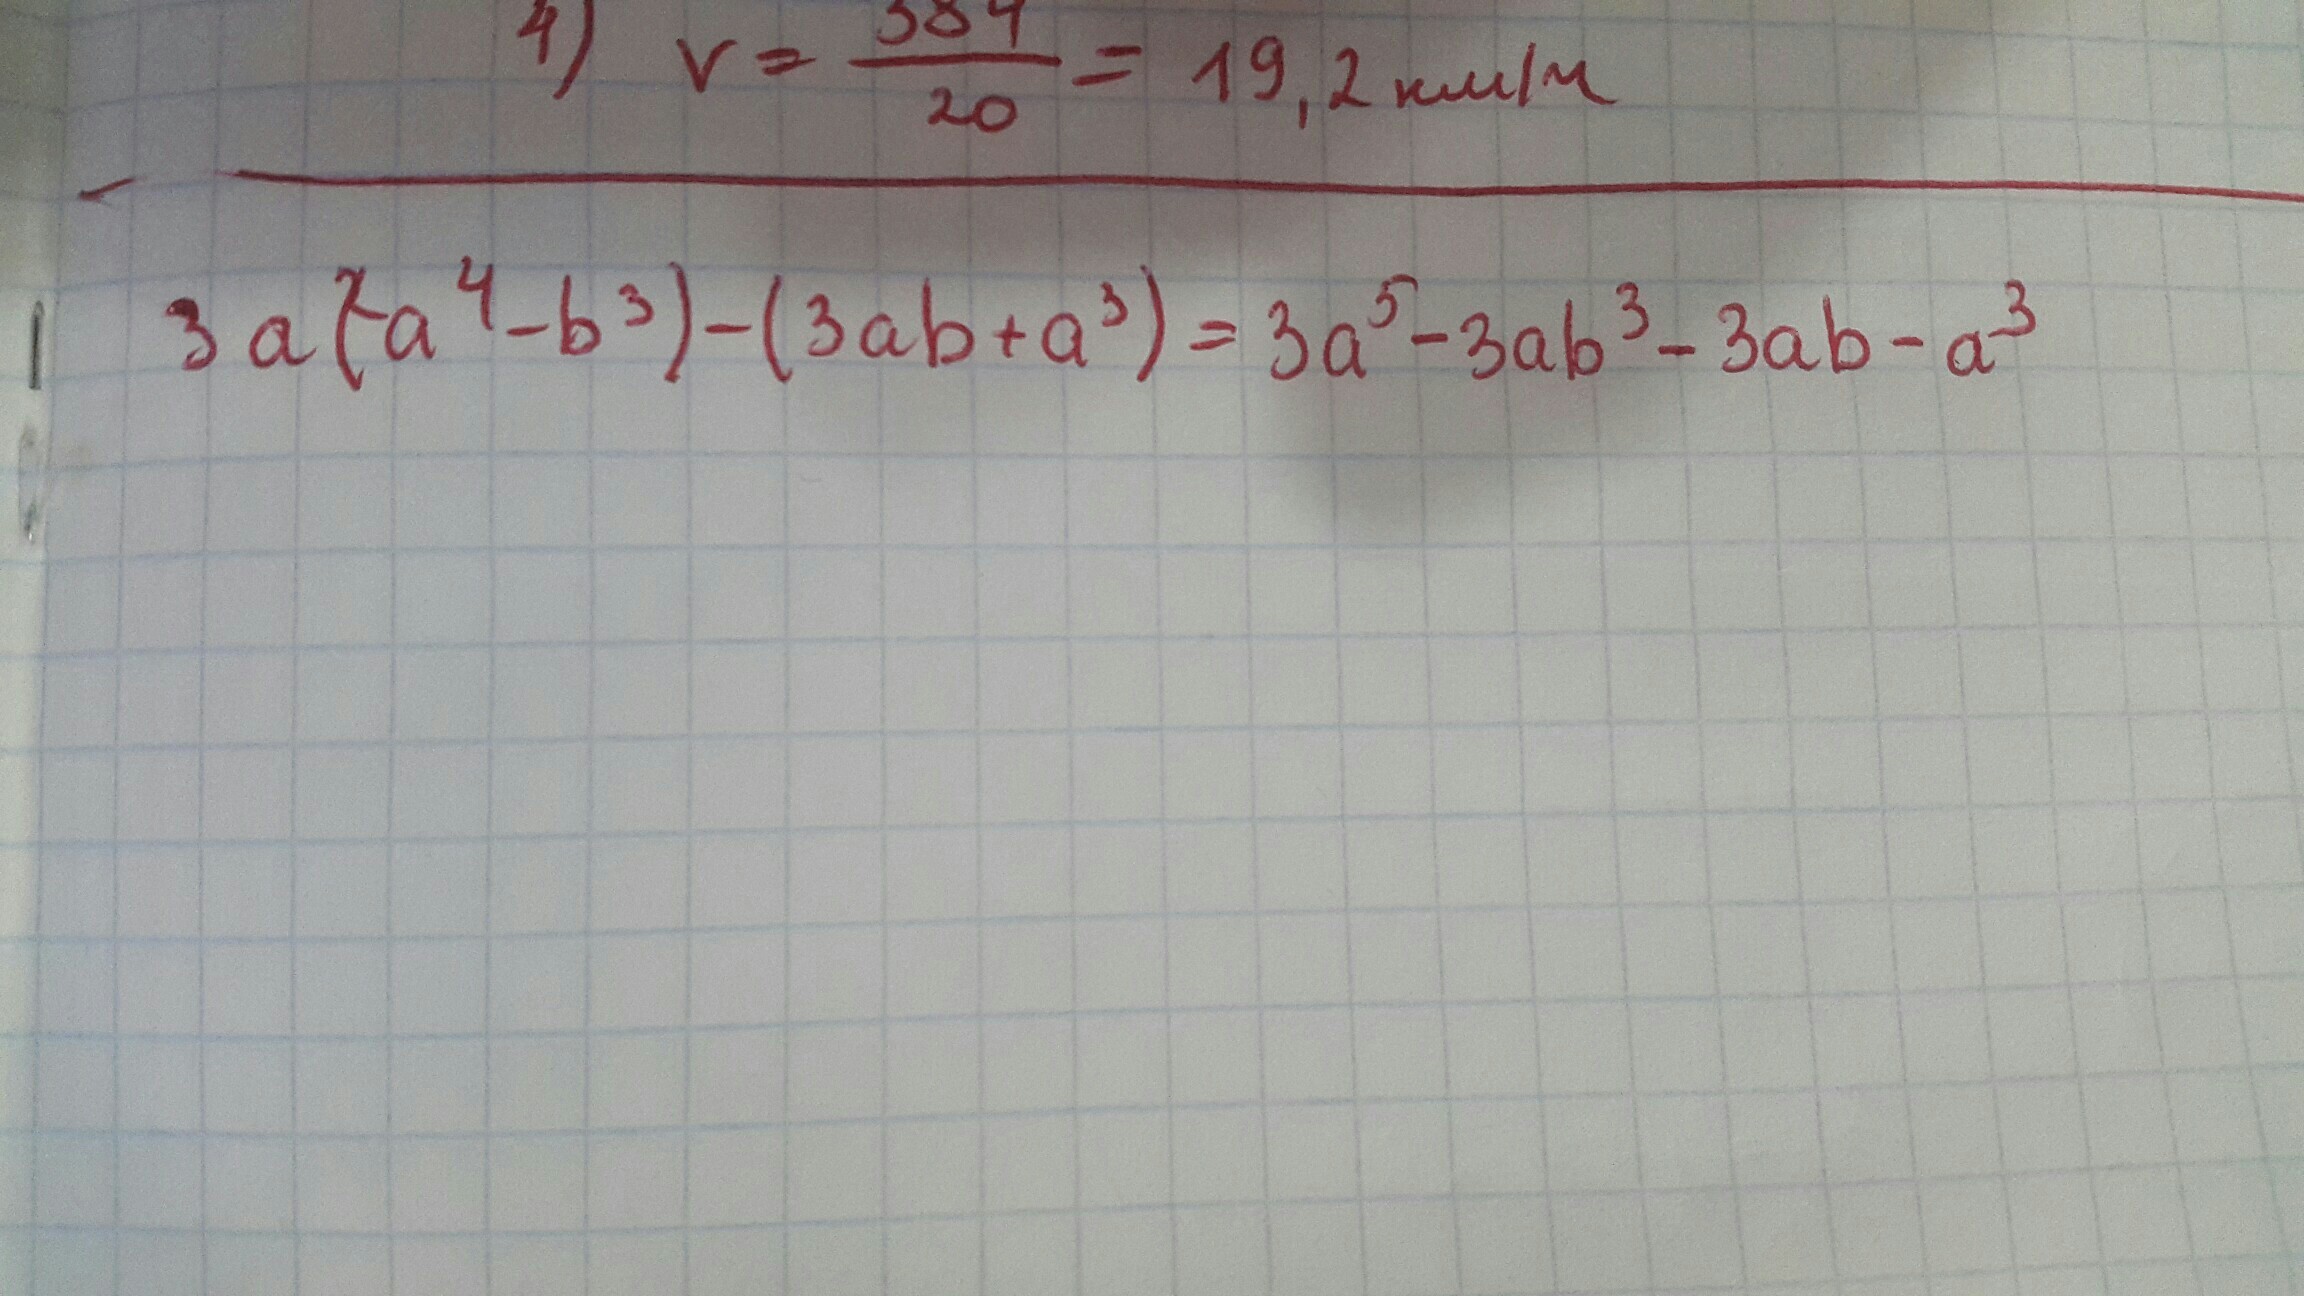 4) v = 384/20 = 19,2 км/ч
3a(a⁴-b³)-(3ab+a³)=3a⁵-3ab³-3ab-a³